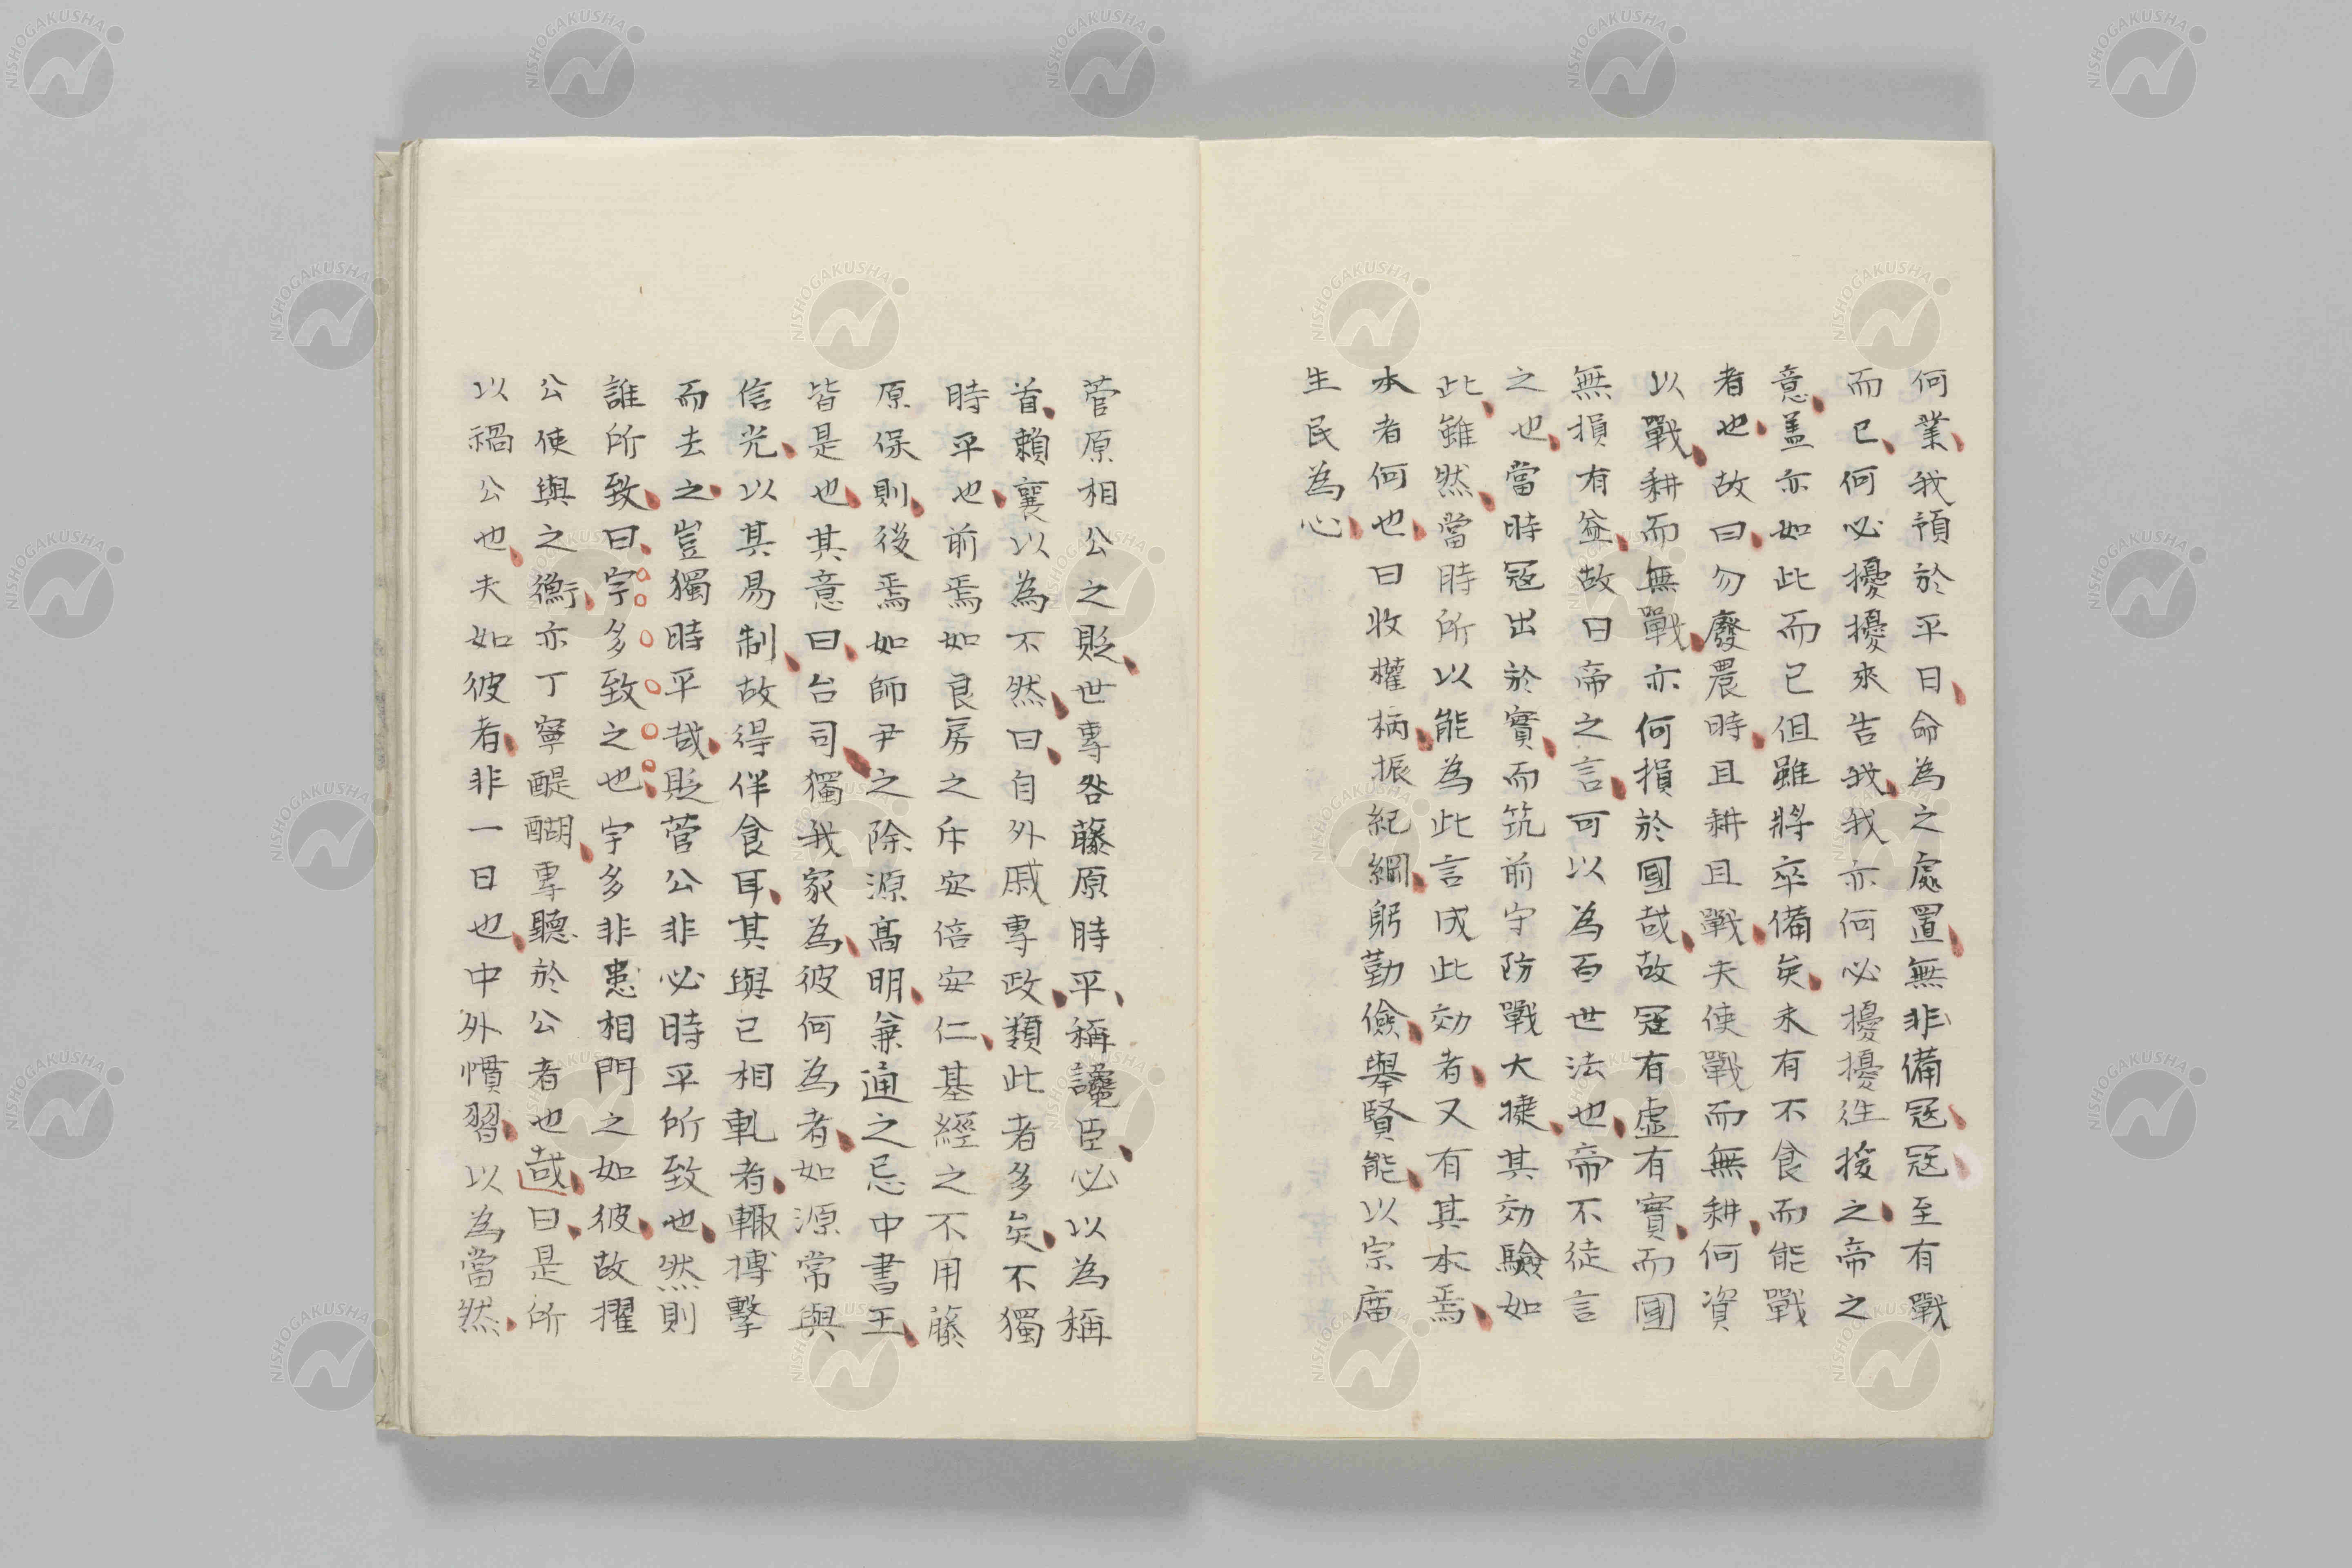 何業我預於平日命為之處置無非備冦冦至有戰
而已何必擾擾來告我我亦何必擾擾徃援之帝之
意盖亦如此而已但雖將卒備矣未有不食而能戰
者也故曰勿廢農時且耕且戰夫使戰而無耕何資
以戰耕而無戰亦何損於國哉故冦有虛有實而國
無損有益故曰帝之言可以為百世法也帝不徒言
之也當時冦出於實而筑前守防戰大捷其効驗如
此雖然當時所以能為此言成此効者又有其本焉
本者何也曰收權柄振紀綱躬勤儉舉賢能以宗廟
生民為心
菅原相公之貶世專咎藤原時平稱讒臣必以為稱
首賴襄以為不然曰自外戚專政類此者多矣不獨
時平也前焉如良房之斥安倍安仁基經之不用藤
原保則後焉如師尹之除源高明兼通之忌中書王
皆是也其意曰台司獨我家為彼何為者如源常與
信光以其易制故得伴食耳其與已相軋者輙搏擊
而去之豈獨時平哉貶菅公非必時平所致也然則
誰所致曰宇多致之也宇多非患相門之如彼故擢
公使與之衡亦丁寧醍醐專聽於公者也哉曰是所
以禍公也夫如彼者非一日也中外慣習以為當然
NISHOGAKUSHA